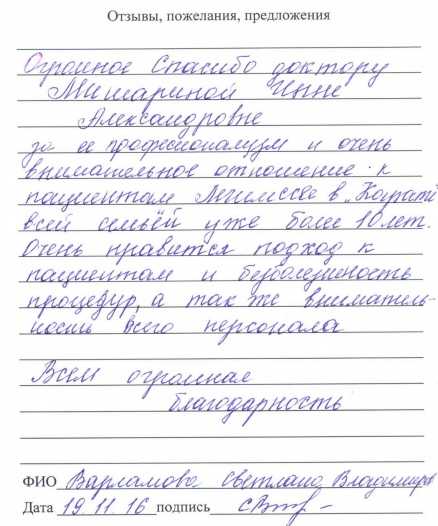 Отзывы, пожелания, предложения
Огромное Спасибо доктору
Мишариной Инне
Александровне
за ее профессионализм и очень
внимательное отношение к
пациентам в
всей семьёй уже более 10 лет.
Очень нравится подход к
пациентам и безболезненность
процедур, а так же вниматель-
ность всего персонала
Всем огромная
благодарность
ФИО Варламова Светлана Владимиров
Дата 19 11 16 подпись